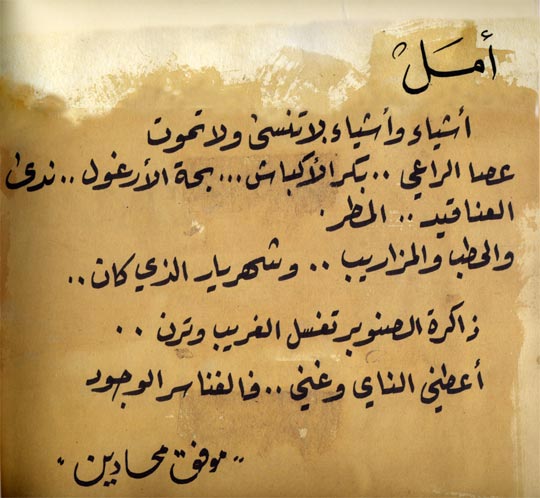 أمَلْ
أشياء وأشياء لا تنسى ولا تموت
عصا الراعي .. بكر الأكباش ... بحة الأرغول .. ندى
العناقيد .. المطر .
والحطب والمزاريب .. وشهريار الذي كان ..
ذاكرة الصنوبر تغسل الغريب وترن ..
أعطني الناي وغني .. فالغنا سر الوجود
" موفق محادين "